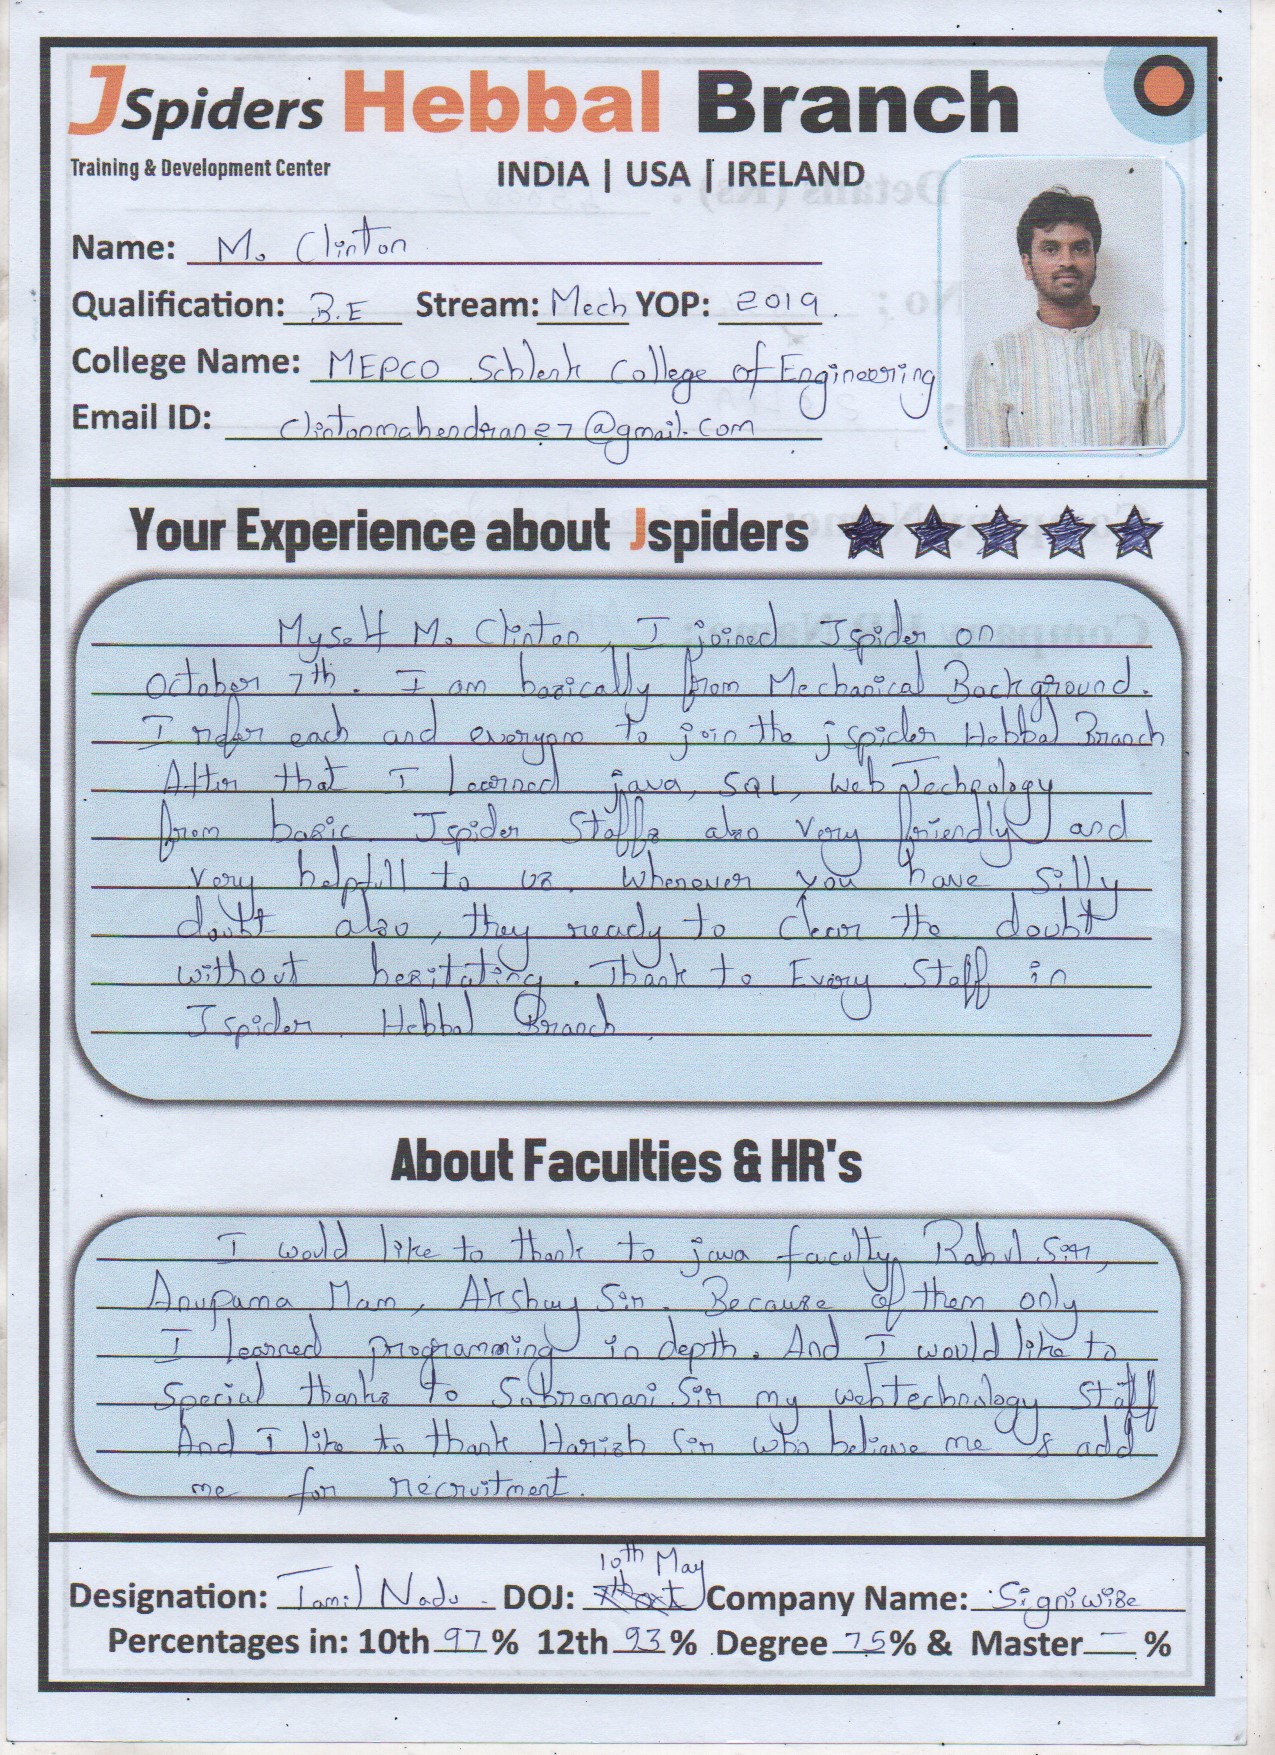 JSpiders Hebbal Branch
Training & Development Center
INDIA | USA | IRELAND
Name: M. Clinton
Qualification: B.E Stream: Mech YOP: 2019.
College Name: MEPCO Schlenk College of Engineering
Email ID: clintonmahendran27@gmail.com
Your Experience about Jspiders
Myself M. Clinton, I joined Jspider on
October 7th. I am basically from Mechanical Background.
I refer each and everyone to join the jspider Hebbal Branch
After that I learned java, SQL, Web Technology
from basic. Jspider Staffs also very friendly and
very helpfull to us. Whenever you have silly
doubt also, they ready to clear the doubt
without hesitating. Thank to Every Staff in
Jspider. Hebbal Branch.
About Faculties & HR's
I would like to thank to java faculty Rahul Sir,
Anupama Mam, Akshay Sir. Because of them only
I learned programming in depth. And I would like to
special thanks to Subramani Sir my webtechnology Staff
And I like to thank Harish Sir who believe me & add
me for recruitment.
10th May
Designation: Tamil Nadu. DOJ: Company Name: Signiwise
Percentages in: 10th 97% 12th 93% Degree 75% & Master - %